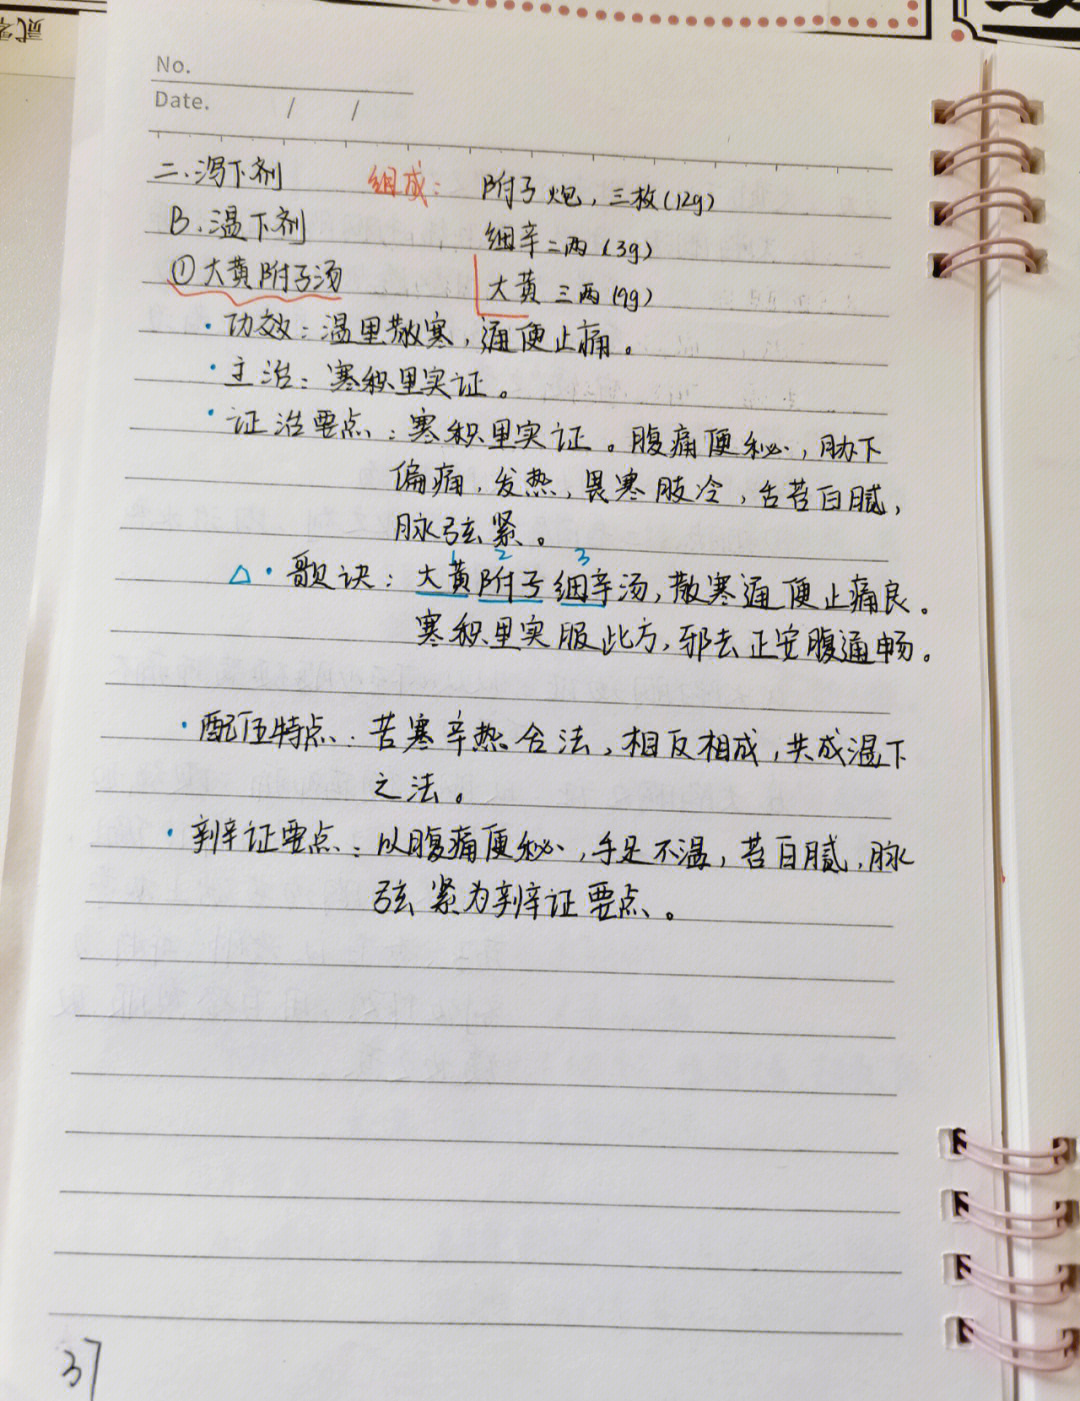 No.
Date. / /
二、泻下剂 组成： 附子炮，三枚(12g)
B.温下剂 细辛二两(3g)
①大黄附子汤 大黄三两(9g)
·功效：温里散寒，通便止痛。
·主治：寒积里实证。
·证治要点：寒积里实证。腹痛便秘，胁下
偏痛，发热，畏寒肢冷，舌苔白腻，
脉弦紧。
1 2 3
△·歌诀：大黄附子细辛汤，散寒通便止痛良。
寒积里实服此方，邪去正安腹通畅。
·配伍特点：苦寒辛热合法，相反相成，共成温下
之法。
·辨证要点：以腹痛便秘，手足不温，苔白腻，脉
弦紧为辨证要点。
37